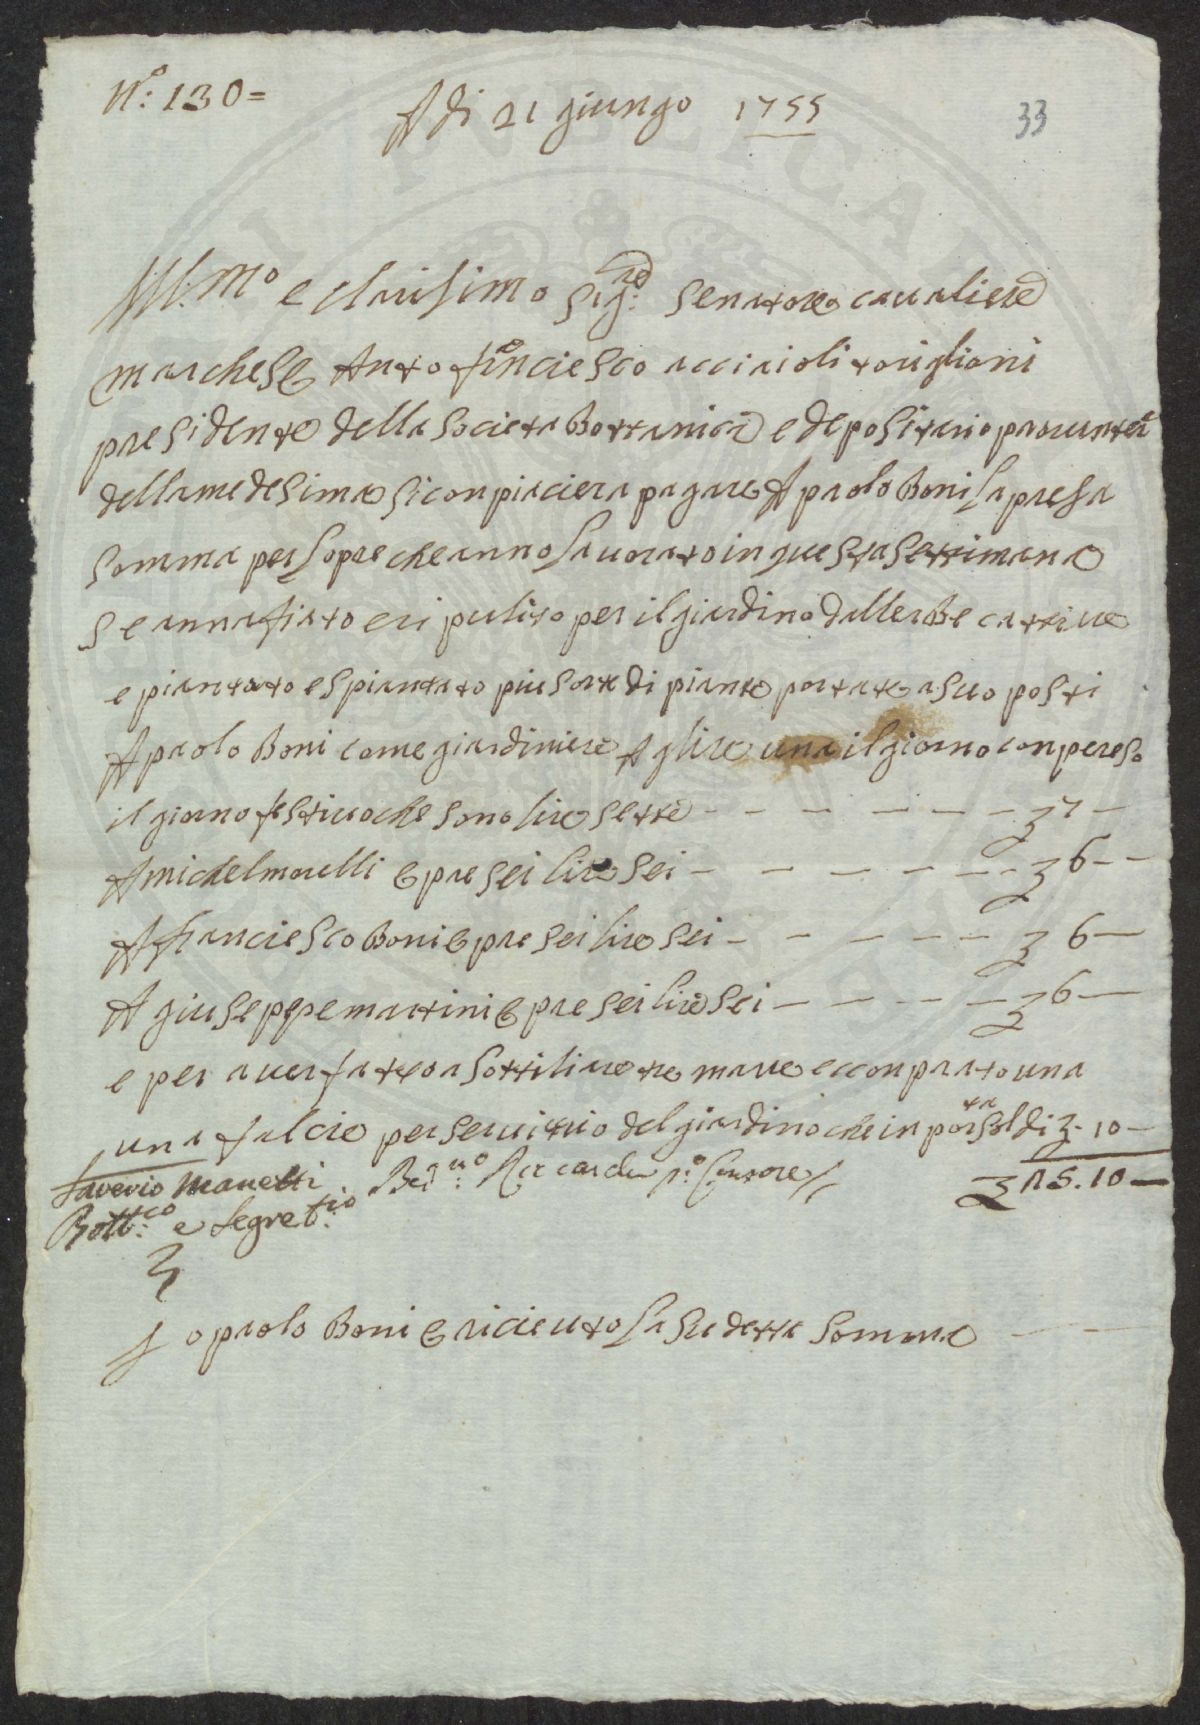 N.o: 130=
A di 21 giungo 1755
33
Ill.mo e clarisimo Sig.re: Senatore cavaliere
marchese Anto francesco acciaioli toriglioni
presidente della Societa Bottanica e depositario
della medesima si conpiaciera pagare A paolo Boni la presa
Somma per lopre che anno lavorato in questa settimana
Se annafiato e ri pulito per il giardino dallerbe cattive
e piantato e spiantato piu sorte di piante portate a suo posti
A paolo Boni come giardiniere A lire una il giorno conpereso
il giorno festivo che sono lire sette - - - - - - 7 -
A michel morelli opre sei lire sei - - - - - - 6 - -
A franciesco Boni opre sei lire sei - - - - - 6 -
A giuseppe martini opre sei lire sei - - - - - 6 -
e per aver fatto asottiliare tre marre e conprato una
una falcie per servitio del giardino che in porta soldi 3. 10 -
Saverio Manetti Ber.no: Riccardi p.o: Censore
25. 10 -
Bott.co: e Segret.io:
Io paolo Boni o ricieuto la sudetta somma - -